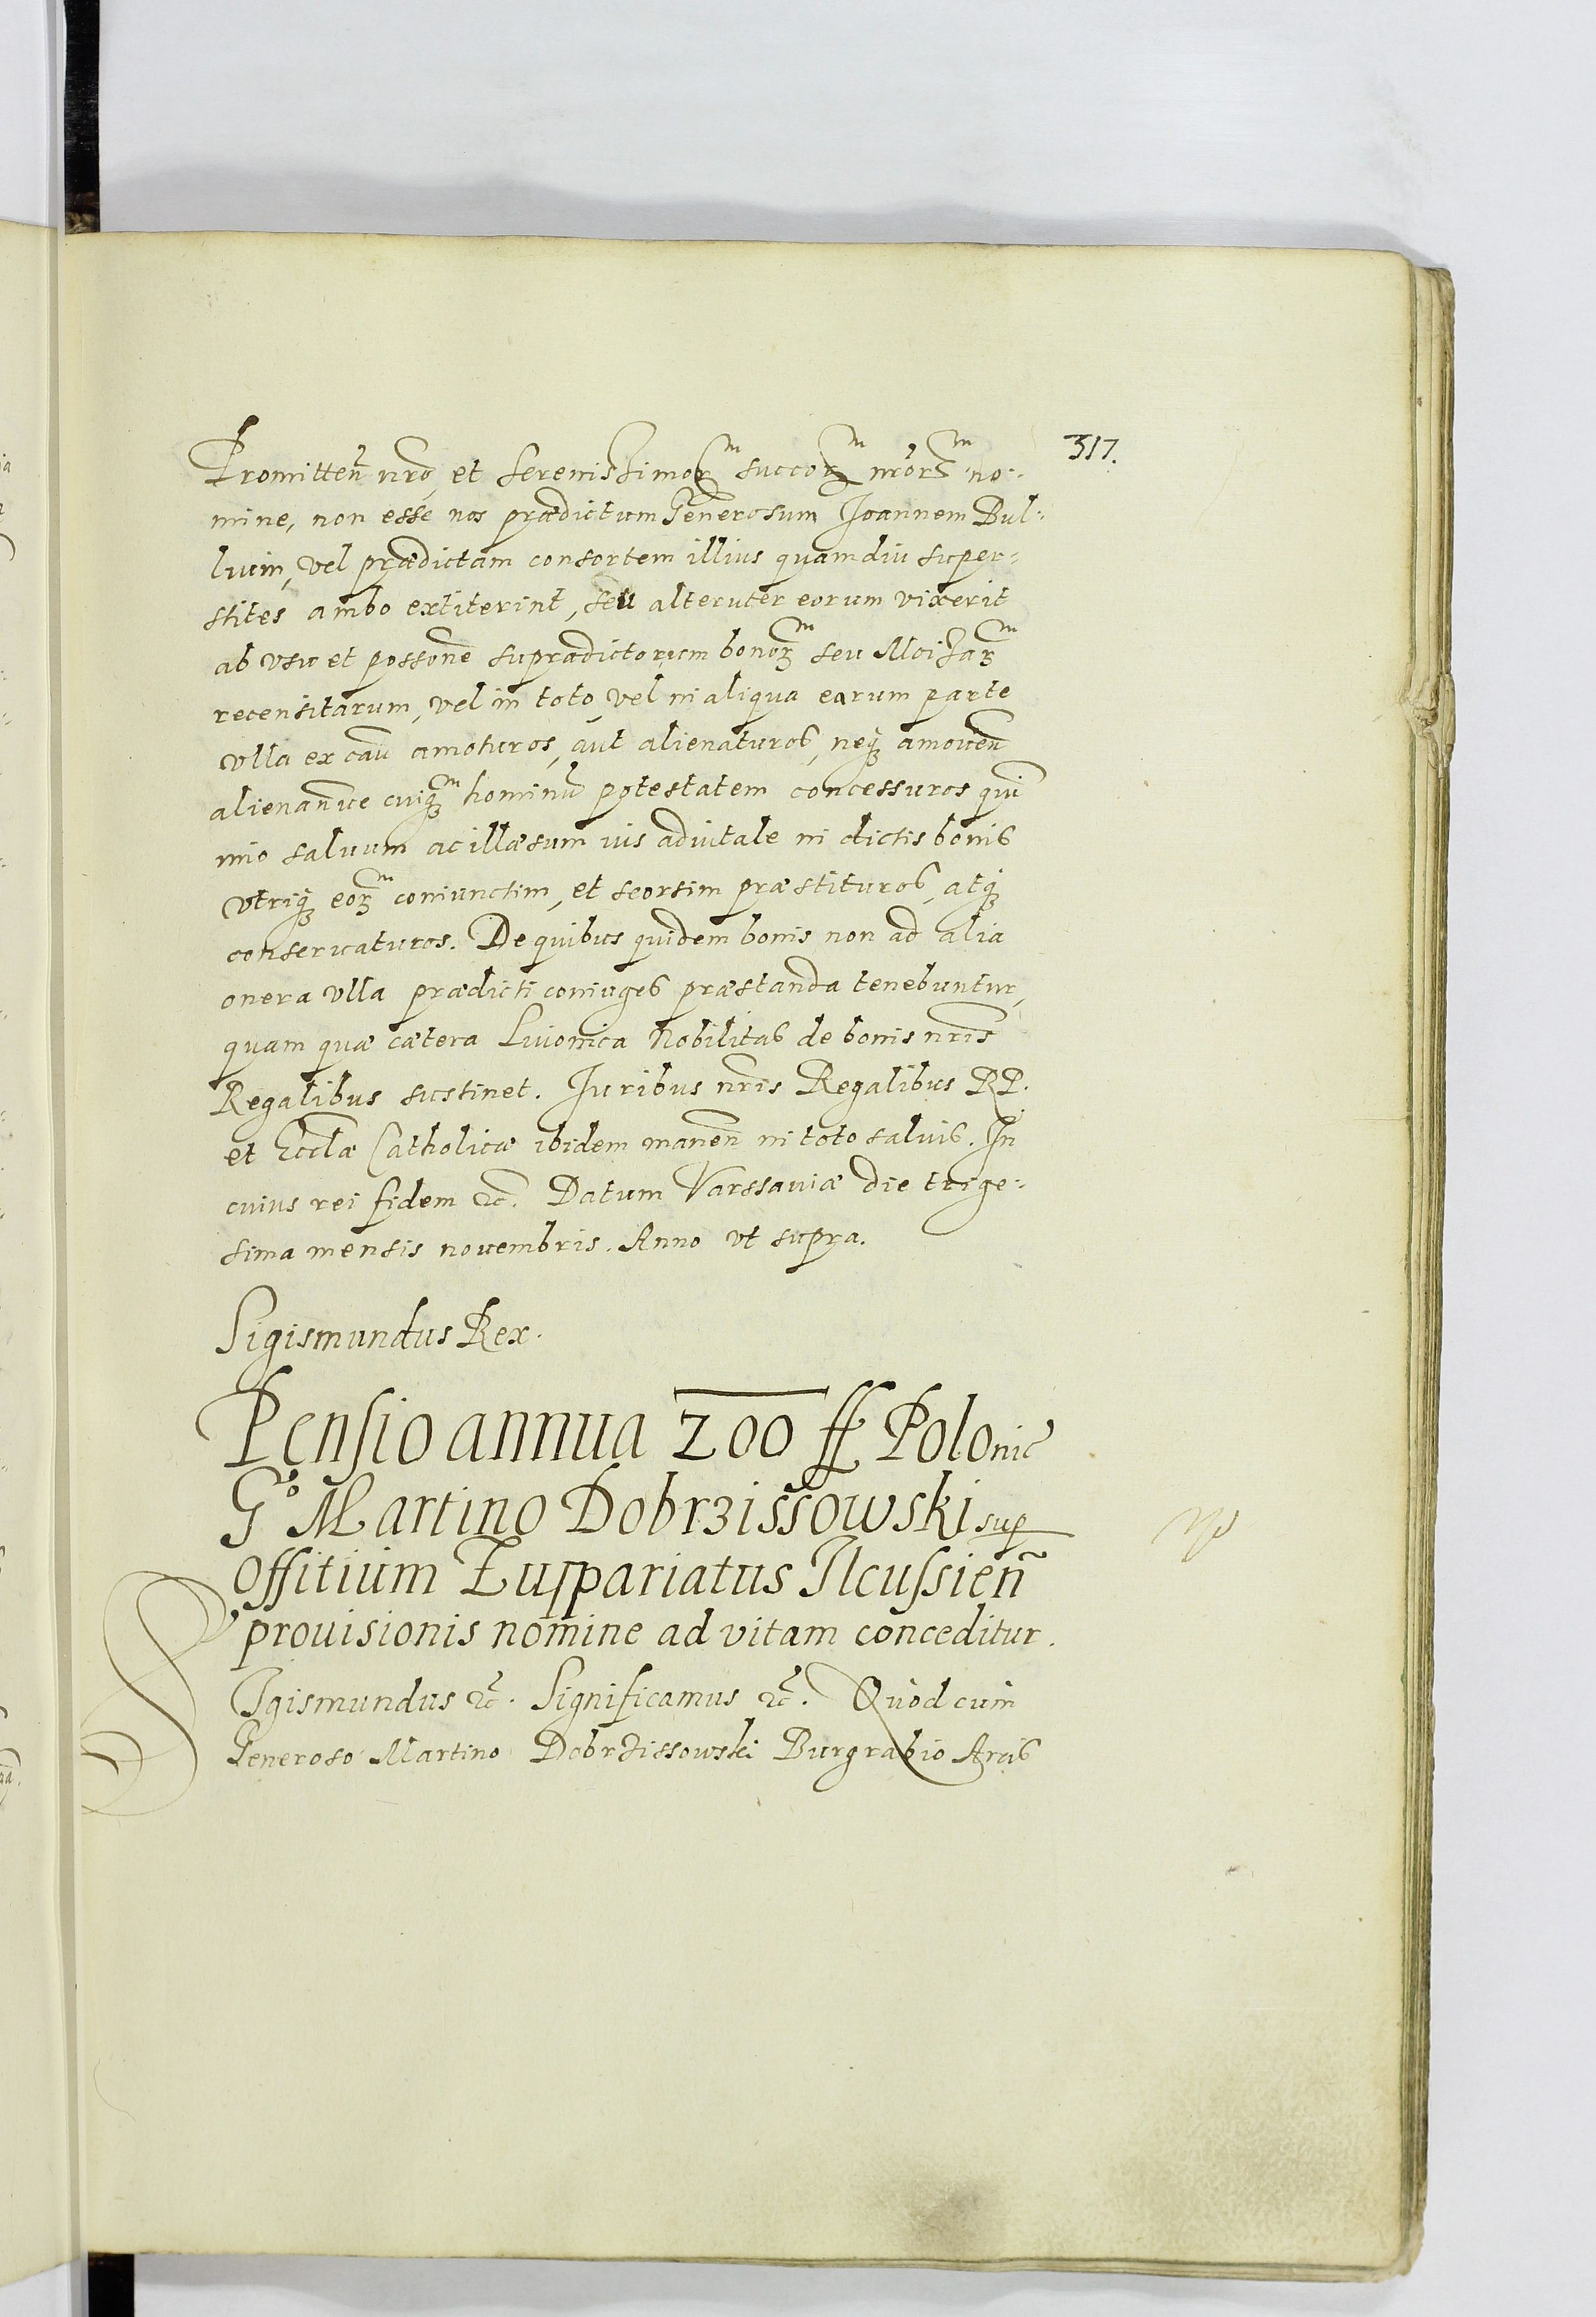 317.
Promitteñ nrõ, et Serenissimorꝫ^m succorꝫ^m nrõrꝫ^m no:
mine, non esse nos prædictum Generosum Joannem Bul:
lium, vel prædictam consortem illius quamdiu super:
stites ambo extiterint, seu alteruter eorum vixerit
ab vsu et possone supradictorum bonorꝫ^m seu Moizarꝫ^m
recensitarum, vel in toto, vel in aliqua earum parte
vlla ex cau amoturos, aut alienaturos, neqꝫ amoueñ
alienanue cuiqꝫ^m hominũ potestatem concessuros quĩ
imo saluum ac illæsum ius aduitale in dictis bonis
vtriqꝫ eorꝫ^m coniunctim, et seorsim præstituros, atqꝫ
conseruaturos. De quibus quidem bonis non ad alia
onera vlla prædicti coniuges præstanda tenebuntur,
quam quæ cætera Liuonica Nobilitas de bonis nris
Regalibus sustinet. Juribus nris Regalibus RP.
et Ecclæ Catholicæ ibidem maneñ in toto saluis. In
cuius rei fidem &c. Datum Varssauiæ die trige:
sima mensis nouembris. Anno vt supra.
Sigismundus Rex.
Pensio annua 200 ff Polonic
G^o Martino Dobrzissowski sup
Offitium Zuppariatus Ilcussieñ
prouisionis nomine ad vitam conceditur.
SIgismundus &c. Significamus &c. Quod cum
Generoso Martino Dobrzissowski Burgrabio Arcis